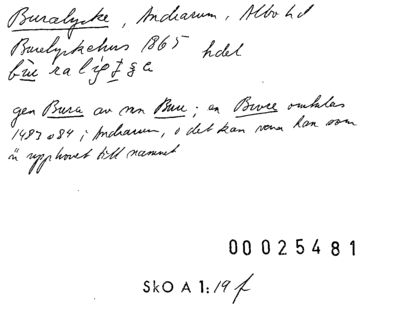 Buralycke, Andrarum, Albo hd
Burelyckehus 1865 hdel
gen Bura av mn Bure; en Bwre omtalas
1483 o 84 i Andrarum, o det kan vara han som
är upphovet till namnet
00025481
SkO A 1:19 f